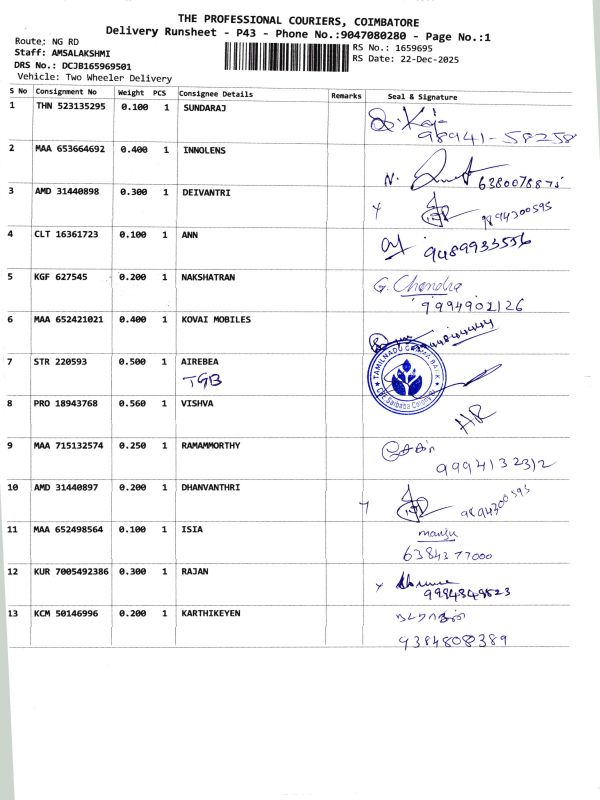 THE PROFESSIONAL COURIERS, COIMBATORE
Delivery Runsheet - P43 - Phone No.:9047080280 - Page No.:1
Route; NG RD
Staff: AMSALAKSHMI
DRS No.: DCJB165969501
Vehicle: Two Wheeler Delivery
RS No.: 1659695
RS Date: 22-Dec-2025
S No Consignment No Weight PCS Consignee Details Remarks Seal & Signature
1 THN 523135295 0.100 1 SUNDARAJ
98941-58258
2 MAA 653664692 0.400 1 INNOLENS
N.
3 AMD 31440898 0.300 1 DEIVANTRI
4 CLT 16361723 0.100 1 ANN
9489933556
5 KGF 627545 0.200 1 NAKSHATRAN
G. Chandra
9994902126
6 MAA 652421021 0.400 1 KOVAI MOBILES
7 STR 220593 0.500 1 AIREBEA
TGB
8 PRO 18943768 0.560 1 VISHVA
HR
9 MAA 715132574 0.250 1 RAMAMMORTHY
9994132312
10 AMD 31440897 0.200 1 DHANVANTHRI
11 MAA 652498564 0.100 1 ISIA
manju
6384377000
12 KUR 7005492386 0.300 1 RAJAN
13 KCM 50146996 0.200 1 KARTHIKEYEN
9384808389